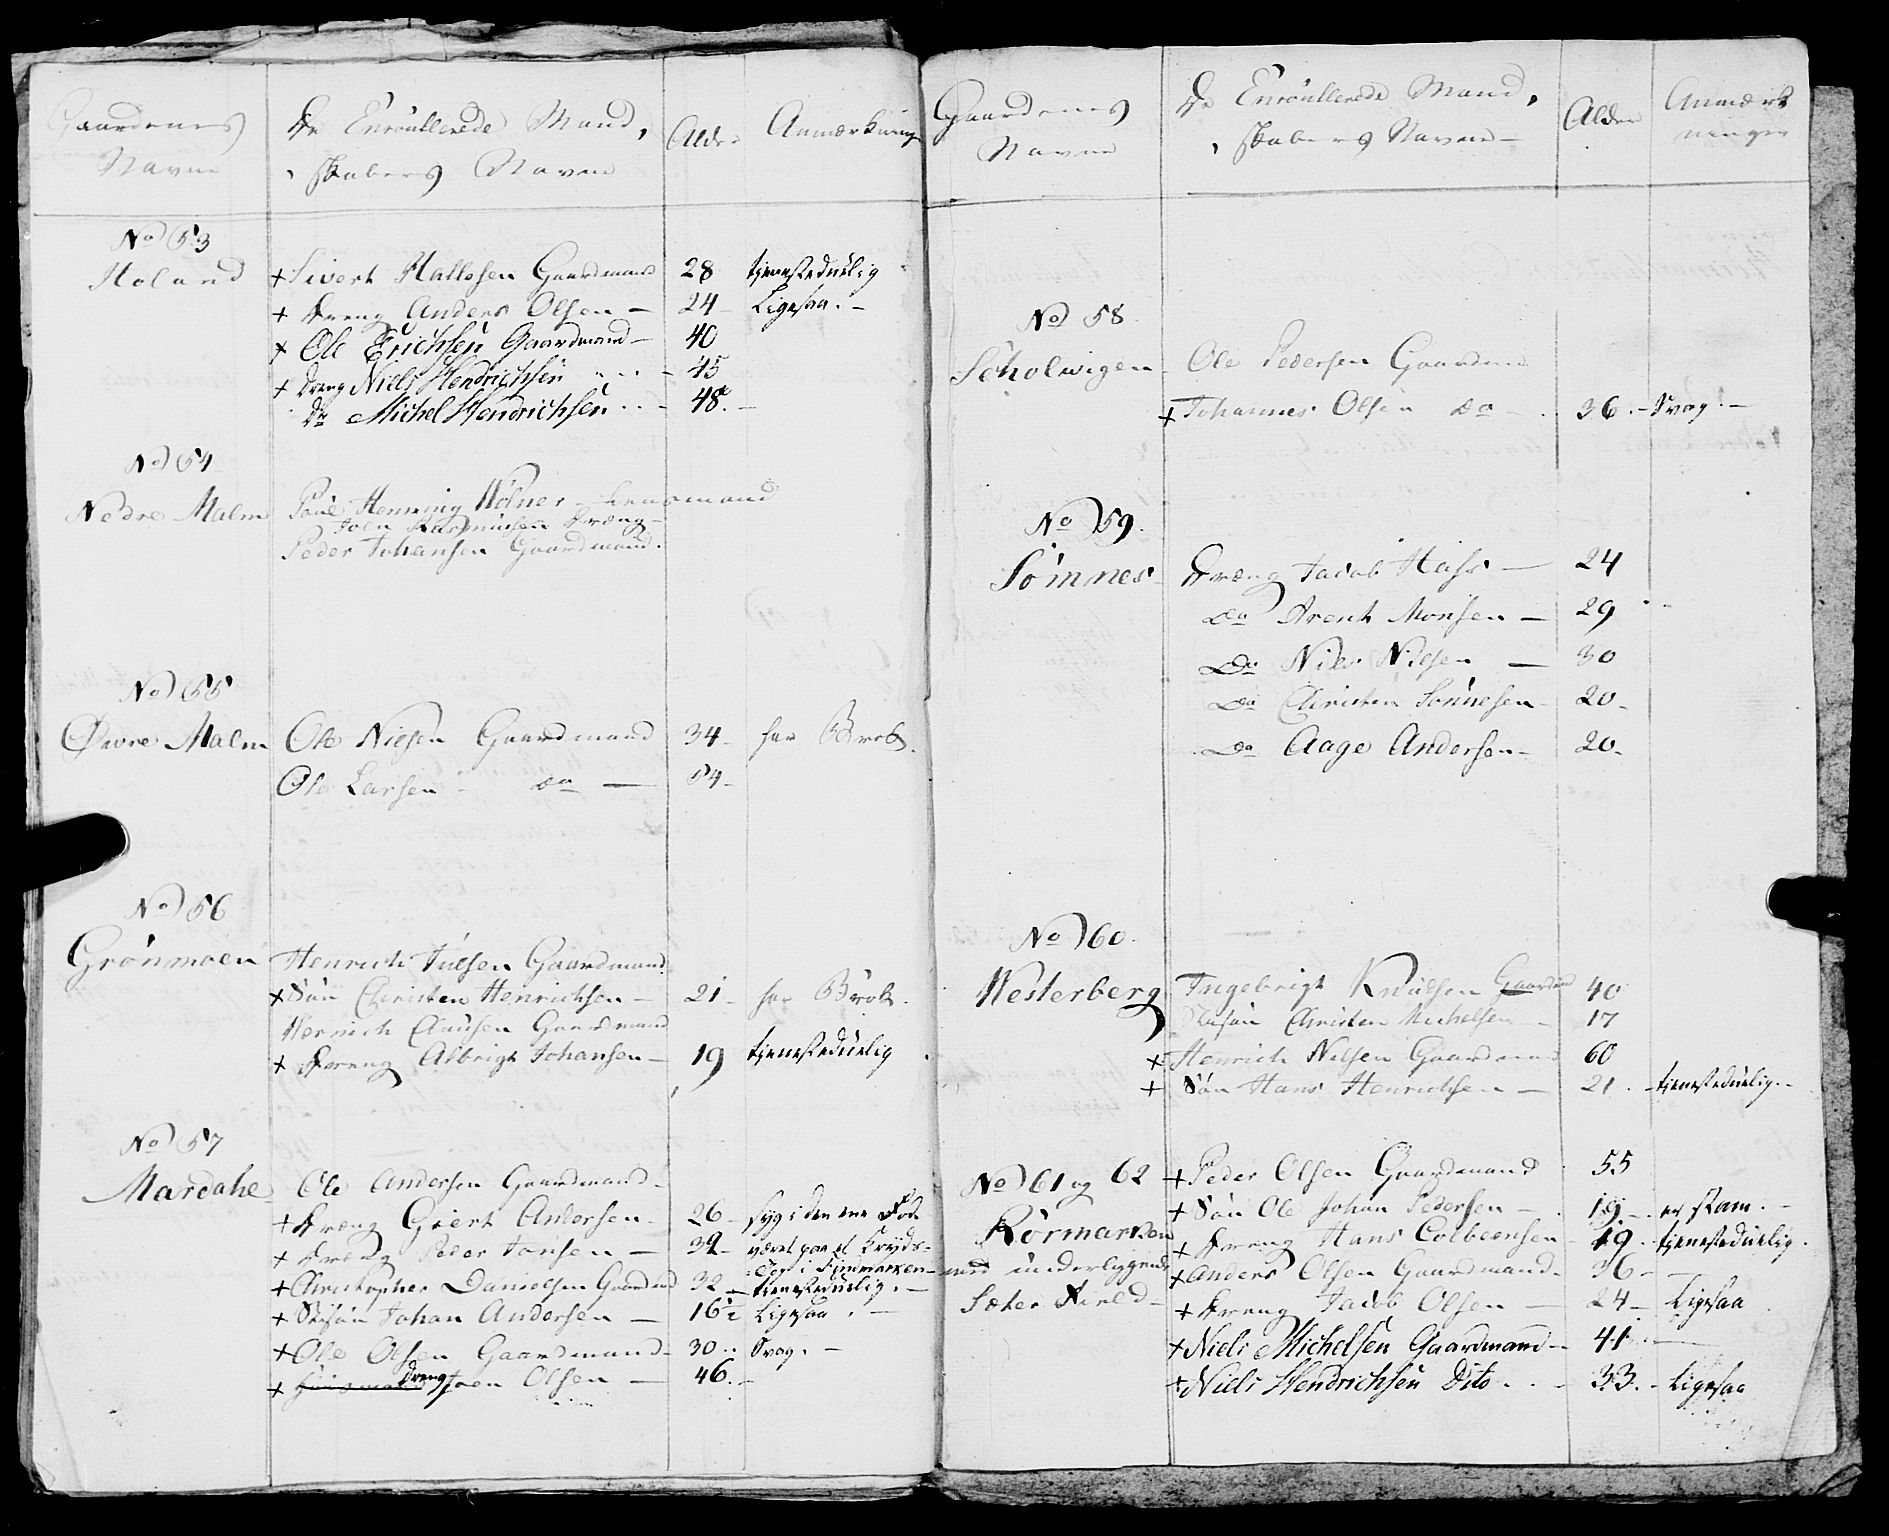 Gaardenes
Navne
De Enroullerede Mand,
, skabers Navne
Alder
Anmærkninger
No 53
Holand
+ Sivert Hallesen Gaardmand 28 tjenesteduelig
+ Dreng Anders Olsen — 24 – Ligesaa. –
+ Ole Erichsen Gaardmand – 40
+ Dreng Niels Hendrichsen - - - 45
Do Michel Hendrichsen - - - 48. –
No 54
Nedre Malm
Poul Henning Wölner – Lensmand
Joen Rasmusen Dreng –
Peder Johansen Gaardmand.
No 55
Øwre Malm
Ole Nielsen Gaardmand 34 – har Brok.
Ole Larsen do — 54 –
No 56
Grönmoen
Henrich Juelsen Gaardmand.
+ Sön Christen Henrichsen – 21 – har Brok.
Henrich Clausen Gaardmand
+ Dreng Albrigt Johansen – 19 tjenesteduelig
No 57
Mardahe
Ole Andersen Gaardmand –
+ Dreng Giert Andersen – 26 – syg i den ene Fod
+ Dreng Peder Jonsen — 32 – været paa et Kryds-
Tog i Finmarken –
+ Christopher Danielsen Gaardmd 32 – tjenesteduelig. –
+ Stifsön Johan Andersen — 16½ Ligesaa. –
+ Ole Olsen Gaardmand – 30 . . Svag. –
+ Huusmand Dreng Joen Olsen — 46. –
Gaardenes
Navne
De Enroullerede Mand,
, skabers Navne –
Alder
Anmærk
ninger
No 58
Scholwigen –
Ole Pedersen Gaardm
+ Johannes Olsen do – . 36. – Svag. –
No 59.
Sömnes –
Dræng Jacob Hass — 24
do Arent Monsen — 29
Do Niels Nielsen — 30
Do Christen Sönnesen – 20 –
Do Aage Andersen – 20 –
No 60.
Westerberg
Ingebrigt Knudsen Gaardmd 40
Stifsön Christen Michelsen — 17
+ Henrich Nilsen Gaardmand 60
+ Sön Hans Henrichsen — 21. – tjenesteduelig. –
No 61 og 62
Körmarken
med underliggende
Sæter
+ Peder Olsen Gaardmand 55
+ Sön Ole Johan Pedersen – . 19 – . er stam. –
+ Dreng Hans Colbeensen – 19 . . tjenesteduelig.
+ Anders Olsen Gaardmand – 36 – —
+ Dreng Jacob Olsen — 24 – Ligesaa
+ Niels Michelsen Gaardmand – 41. —
+ Niels Hendrichsen Dito. . – 33. – Ligesaa